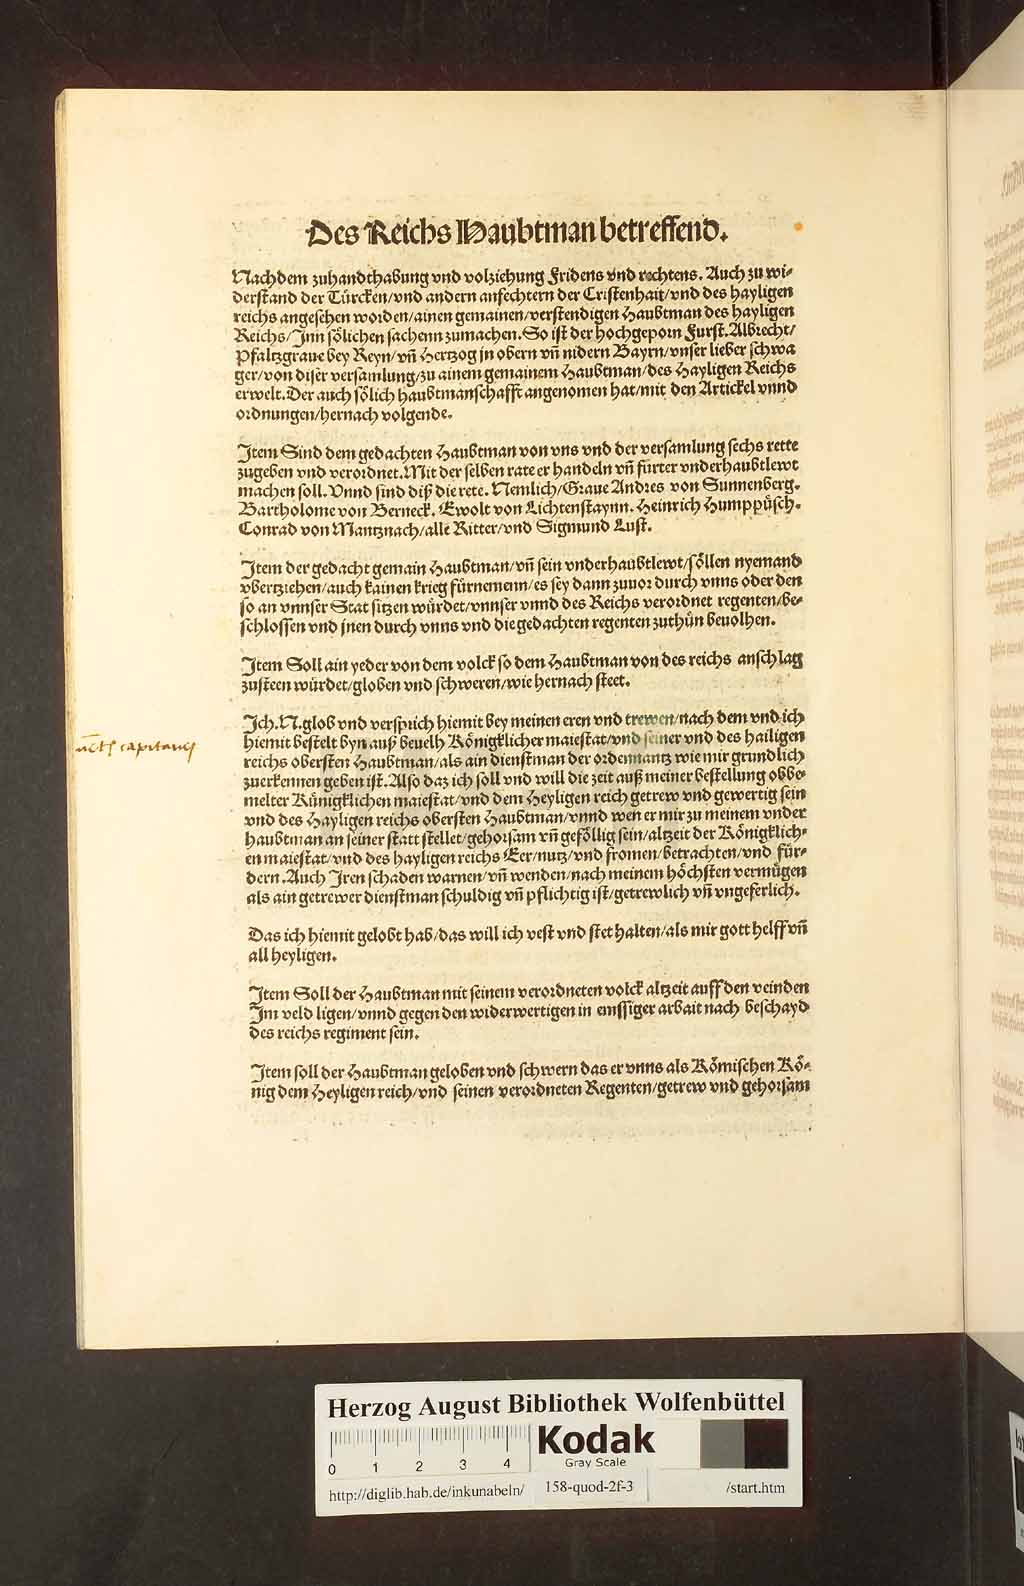 Des Reichs Haubtman betreffend.
Nachdem zuhandthabung vnd volziehung Fridens vnd rechtens. Auch zu wi-
derstand der Türcken/vnd andern anfechtern der Cristenhait/vnd des hayligen
reichs angesehen worden/ainen gemainen/verstendigen Haubtman des hayligen
Reichs/Jnn sölichen sachenn zumachen. So ist der hochgeporn Furst. Albrecht/
Pfaltzgraue bey Reyn/vñ Hertzog jn obern vñ nidern Bayrn/vnser lieber schwa
ger/von diser versamlung/zu ainem gemainem Haubtman/des Hayligen Reichs
erwelt. Der auch sölich haubtmanschafft angenomen hat/mit den Artickel vnnd
ordnungen/hernach volgende.
Jtem Sind dem gedachten Haubtman von vns vnd der versamlung sechs rette
zugeben vnd verordnet. Mit der selben rate er handeln vñ fürter vnderhaubtlewt
machen soll. Vnnd sind diß die rete. Nemlich/Graue Andres von Sunnenberg.
Bartholome von Berneck. Ewolt von Lichtenstaynn. Heinrich Humppüsch.
Conrad von Mantznach/alle Ritter/vnd Sigmund Lust.
Jtem der gedacht gemain Haubtman/vñ sein vnderhaubtlewt/söllen nyemand
vbertziehen/auch kainen krieg fürnemenn/es sey dann zuuor durch vnns oder den
so an vnnser Stat sitzen würdet/vnnser vnnd des Reichs verordnet regenten/be-
schlossen vnd jnen durch vnns vnd die gedachten regenten zuthůn beuolhen.
Jtem Soll ain yeder von dem volck so dem Haubtman von des reichs anschlag
zusteen würdet/globen vnd schweren/wie hernach steet.
Jch. N. glob vnd versprich hiemit bey meinen eren vnd trewen/nach dem vnd ich
hiemit bestelt byn auß beuelh Königklicher maiestat/vnd seiner vnd des hailigen
reichs obersten Haubtman/als ain dienstman der ordennantz wie mir grundlich
zuerkennen geben ist. Also daz ich soll vnd will die zeit auß meiner bestellung obbe-
melter Künigklichen maiestat/vnd dem Heyligen reich getrew vnd gewertig sein
vnd des Hayligen reichs obersten Haubtman/vnnd wen er mir zu meinem vnder
haubtman an seiner statt stellet/gehorsam vñ geföllig sein/altzeit der Königklich-
en maiestat/vnd des hayligen reichs Eer/nutz/vnd fromen/betrachten/vnd für-
dern. Auch Jren schaden warnen/vñ wenden/nach meinem höchsten vermügen
als ain getrewer dienstman schuldig vñ pflichtig ist/getrewlich vñ vngeferlich.
Das ich hiemit gelobt hab/das will ich vest vnd stet halten/als mir gott helff vñ
all heyligen.
Jtem Soll der Haubtman mit seinem verordneten volck altzeit auff den veinden
Jm veld ligen/vnnd gegen den widerwertigen in emssiger arbait nach beschayd
des reichs regiment sein.
Jtem soll der Haubtman geloben vnd schwern das er vnns als Römischen Kö-
nig dem Heyligen reich/vnd seinen verordneten Regenten/getrew vnd gehorsam
capitanej
Herzog August Bibliothek Wolfenbüttel
0 1 2 3 4
Kodak
Gray Scale
http://diglib.hab.de/inkunabeln/ 158-quod-2f-3 /start.htm